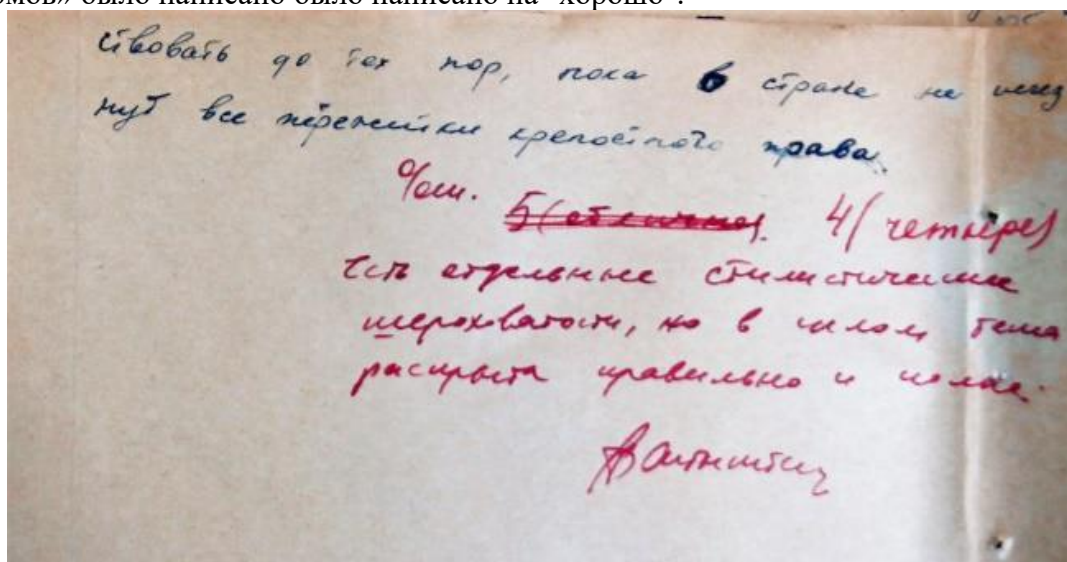 омов» было написано было написано на "хорошо".
ствовать до тех пор, пока в стране не исчез
нут все пережитки крепостного права.
Ош. 5 (отлично). 4 (четыре)
Есть отдельные стилистические
шероховатости, но в целом тема
раскрыта правильно и